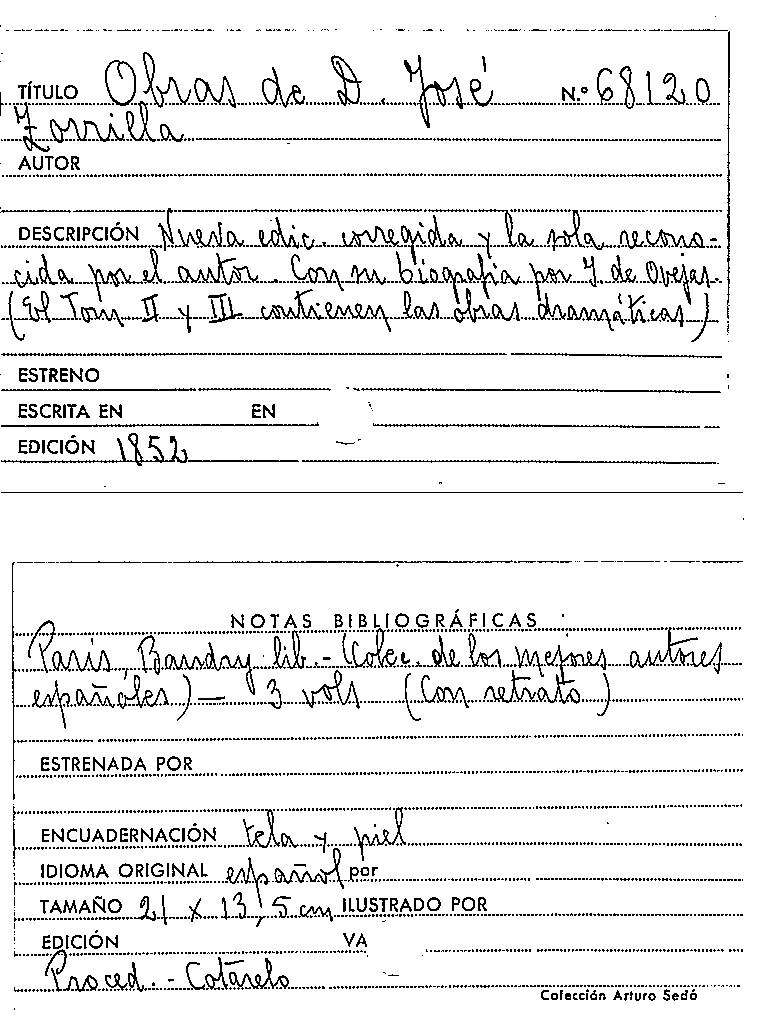 TÍTULO Obras de D. José N.º 68120
Zorrilla
AUTOR
DESCRIPCIÓN Nueva edic. corregida y la sola recono-
cida por el autor. Con su biografia por I. de Ovejas.
(El Tom II y III contienen las obras dramáticas)
ESTRENO
ESCRITA EN EN
EDICIÓN 1852
NOTAS BIBLIOGRÁFICAS
Paris, Baudry lib. - (Colec. de los mejores autores
españoles) - 3 vols (Con retrato)
ESTRENADA POR
ENCUADERNACIÓN tela y piel
IDIOMA ORIGINAL español por
TAMAÑO 21 x 13,5 cm ILUSTRADO POR
EDICIÓN VA
Proced. - Cotarelo
Colección Arturo Sedó